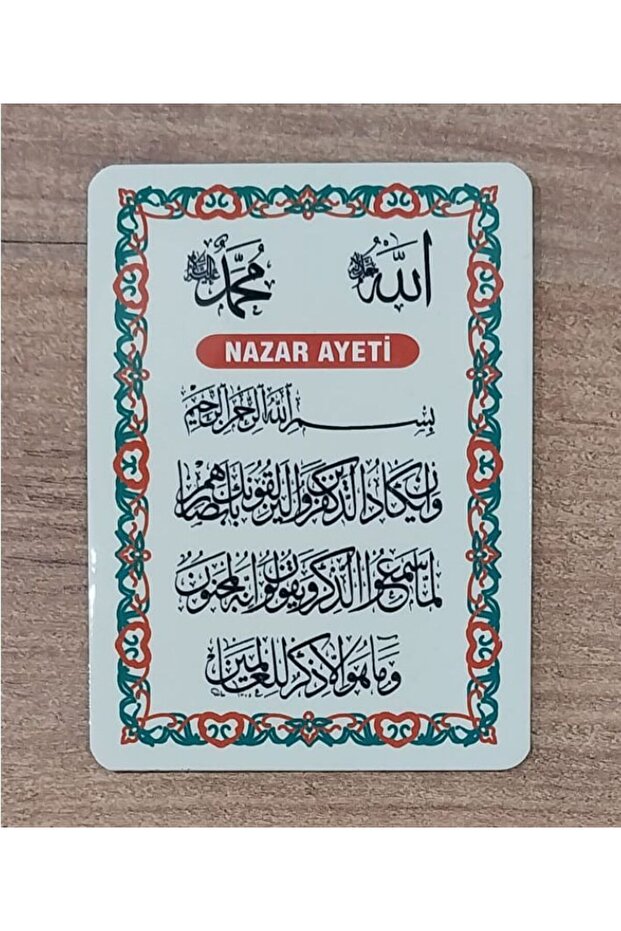 الله جل جلاله محمد عليه السلام
NAZAR AYETİ
بسم الله الرحمن الرحيم
وان يكاد الذين كفروا ليزلقونك بابصارهم
لما سمعوا الذكر ويقولون انه لمجنون
وما هو الا ذكر للعالمين